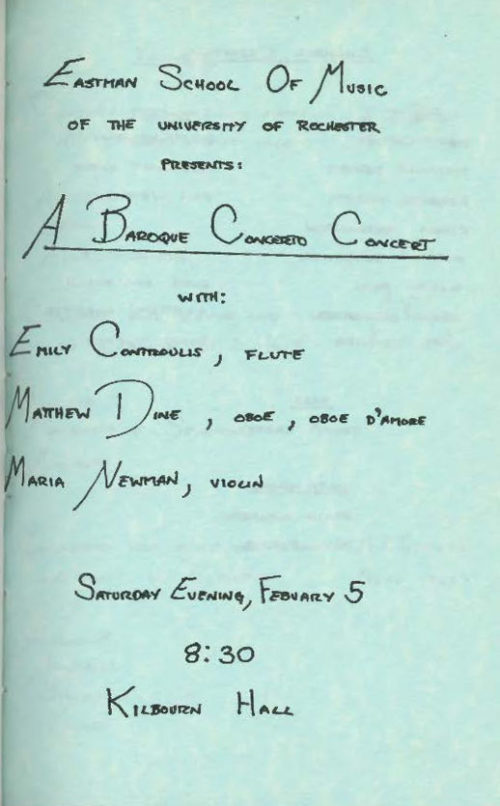 Eastman School Of Music
of the University of Rochester
presents:
A Baroque Concerto Concert
with:
Emily Controulis, flute
Matthew Dine, oboe, oboe d'amore
Maria Newman, violin
Saturday Evening, Febuary 5
8:30
Kilbourn Hall